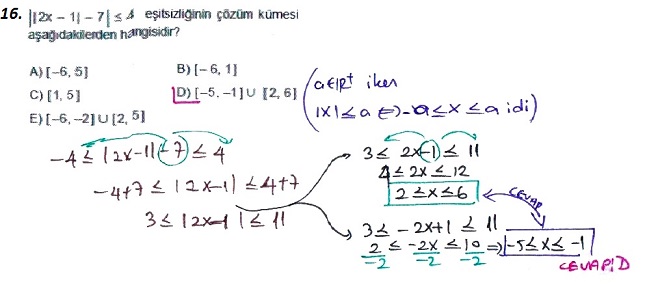 16. ||2x – 1| – 7| ≤ 4 eşitsizliğinin çözüm kümesi
aşağıdakilerden hangisidir?
A) [–6, 5]
B) [–6, 1]
C) [1, 5]
D) [–5, –1] ∪ [2, 6]
E) [–6, –2] ∪ [2, 5]
(a∈R⁺ iken
|x| ≤ a ⇔ –a ≤ x ≤ a idi)
–4 ≤ |2x–1| – 7 ≤ 4
–4+7 ≤ |2x–1| ≤ 4+7
3 ≤ |2x–1| ≤ 11
3 ≤ 2x–1 ≤ 11
4 ≤ 2x ≤ 12
2 ≤ x ≤ 6
CEVAP
3 ≤ –2x+1 ≤ 11
2/–2 ≤ –2x/–2 ≤ 10/–2 ⇒ –5 ≤ x ≤ –1
CEVAP: D